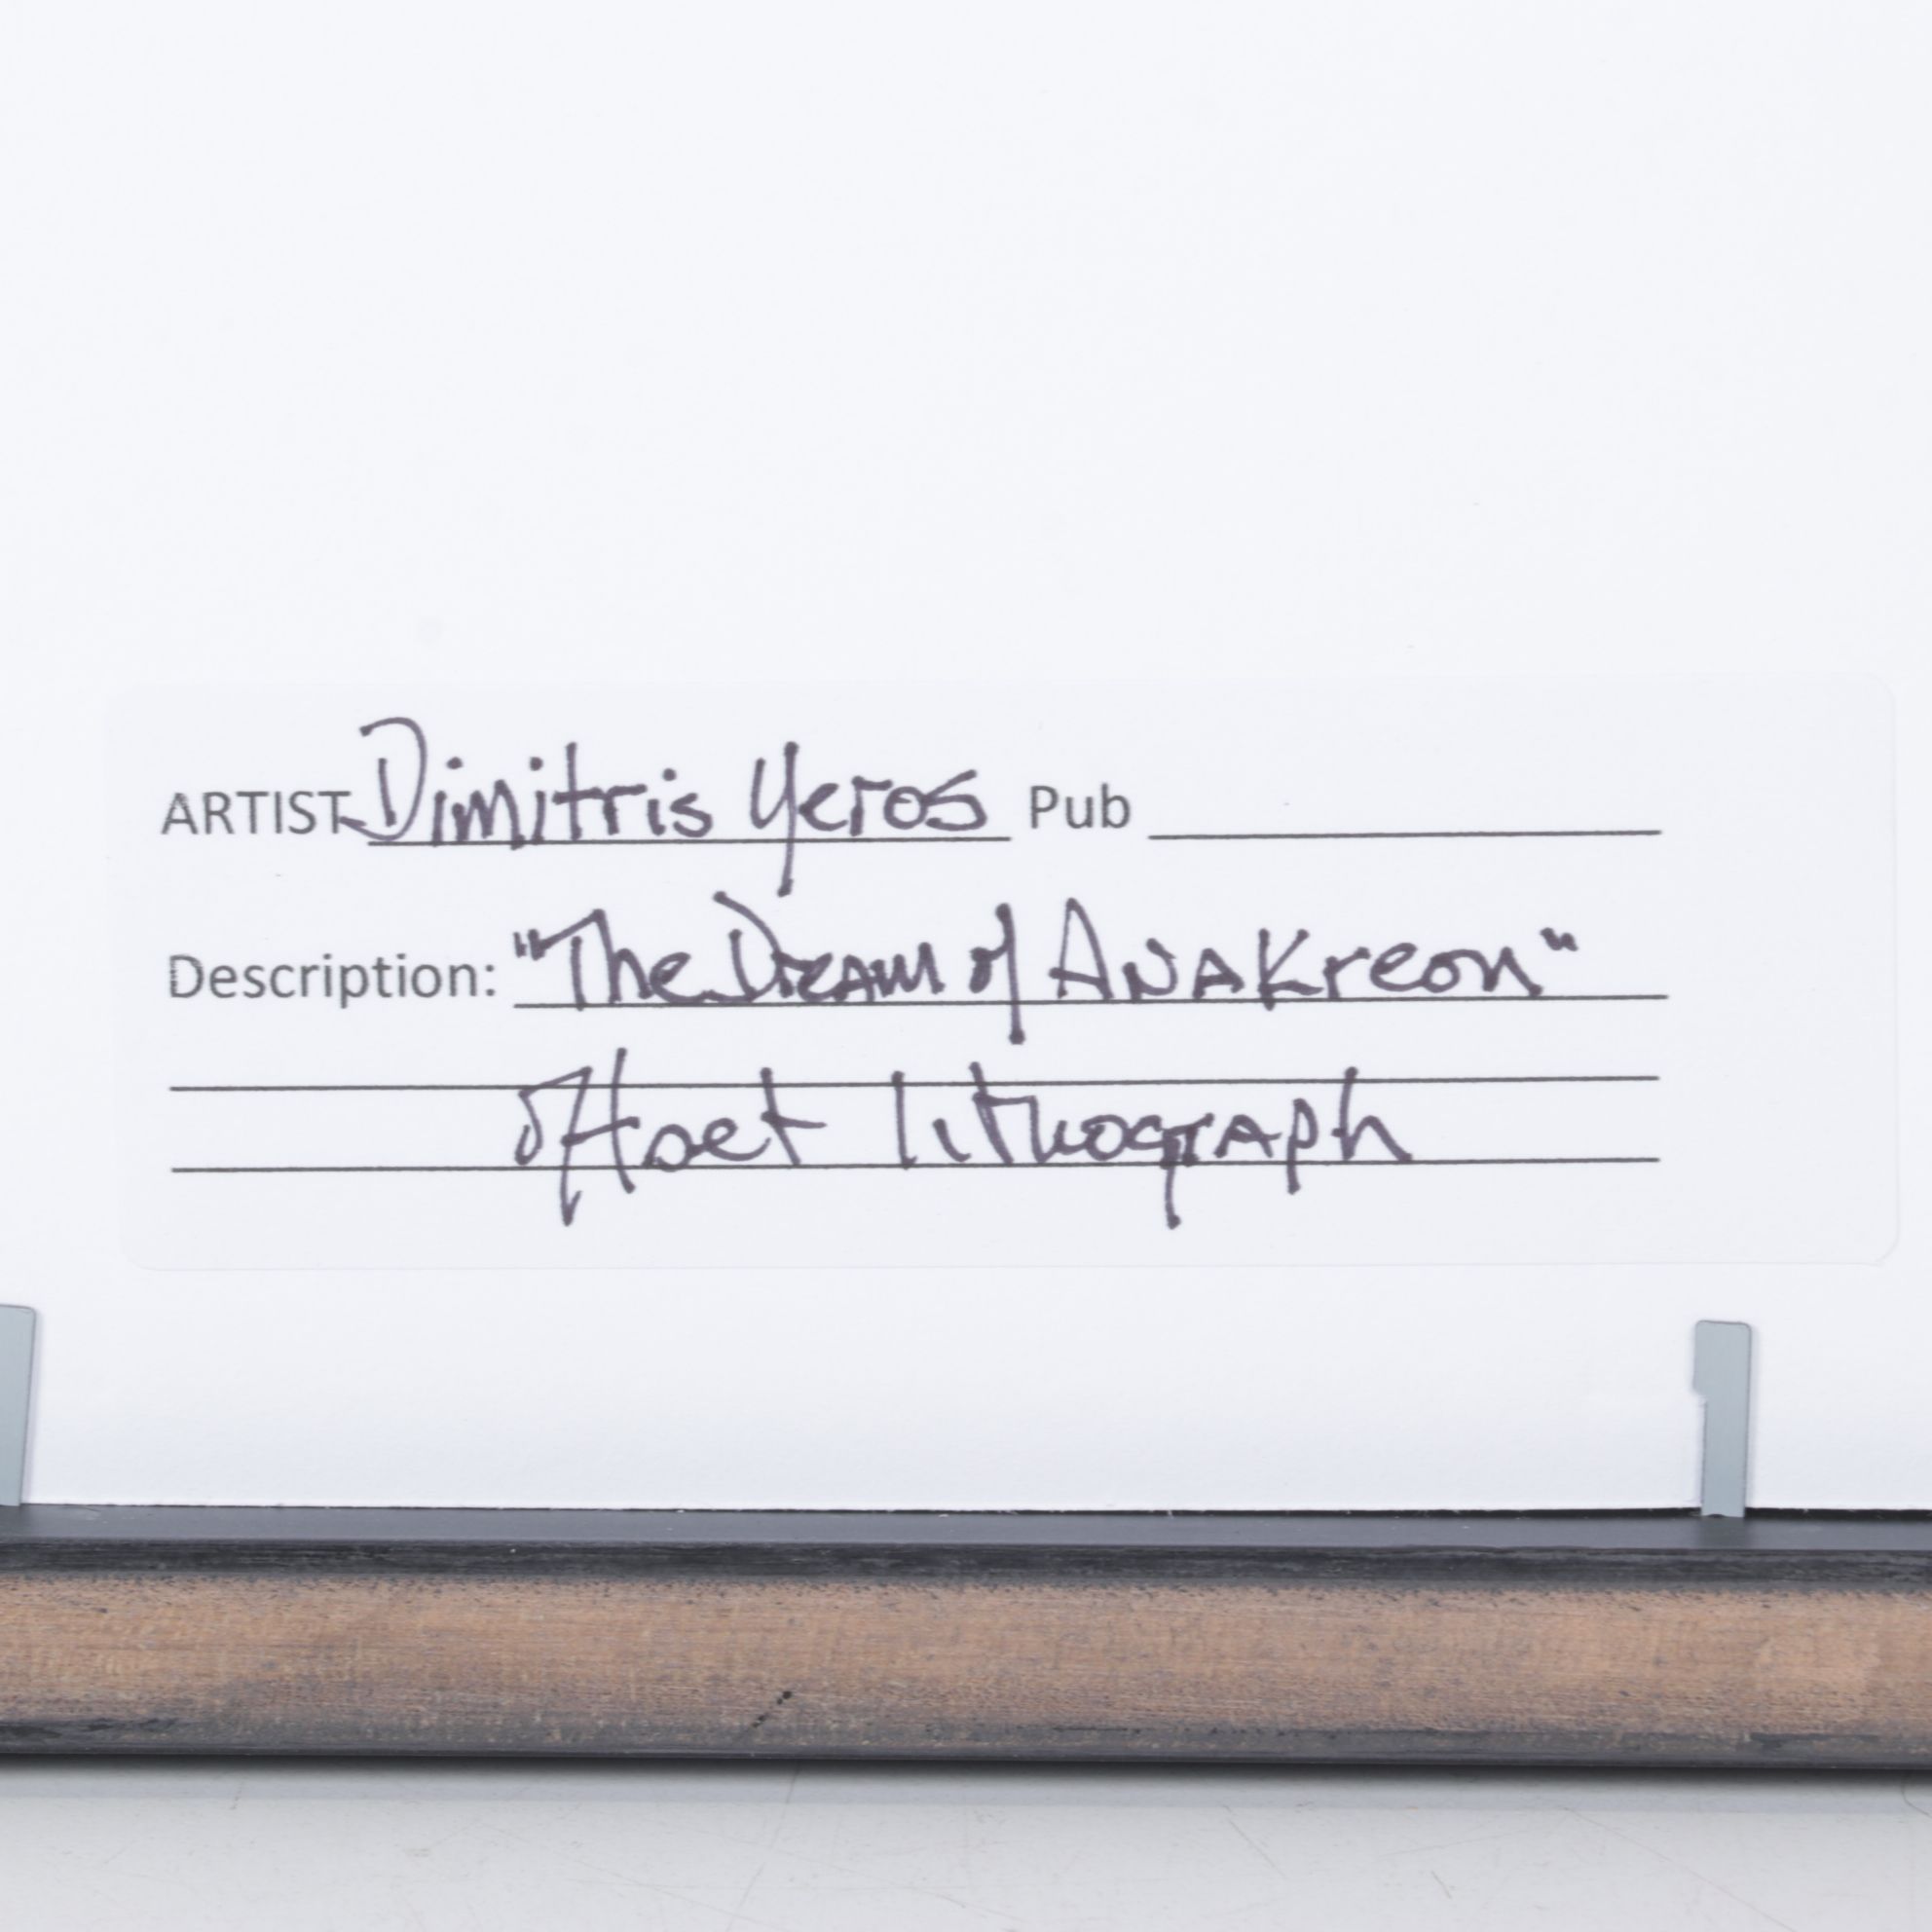 ARTIST Dimitris Yeros Pub
Description: "The Dream of Anakreon"
offset lithograph